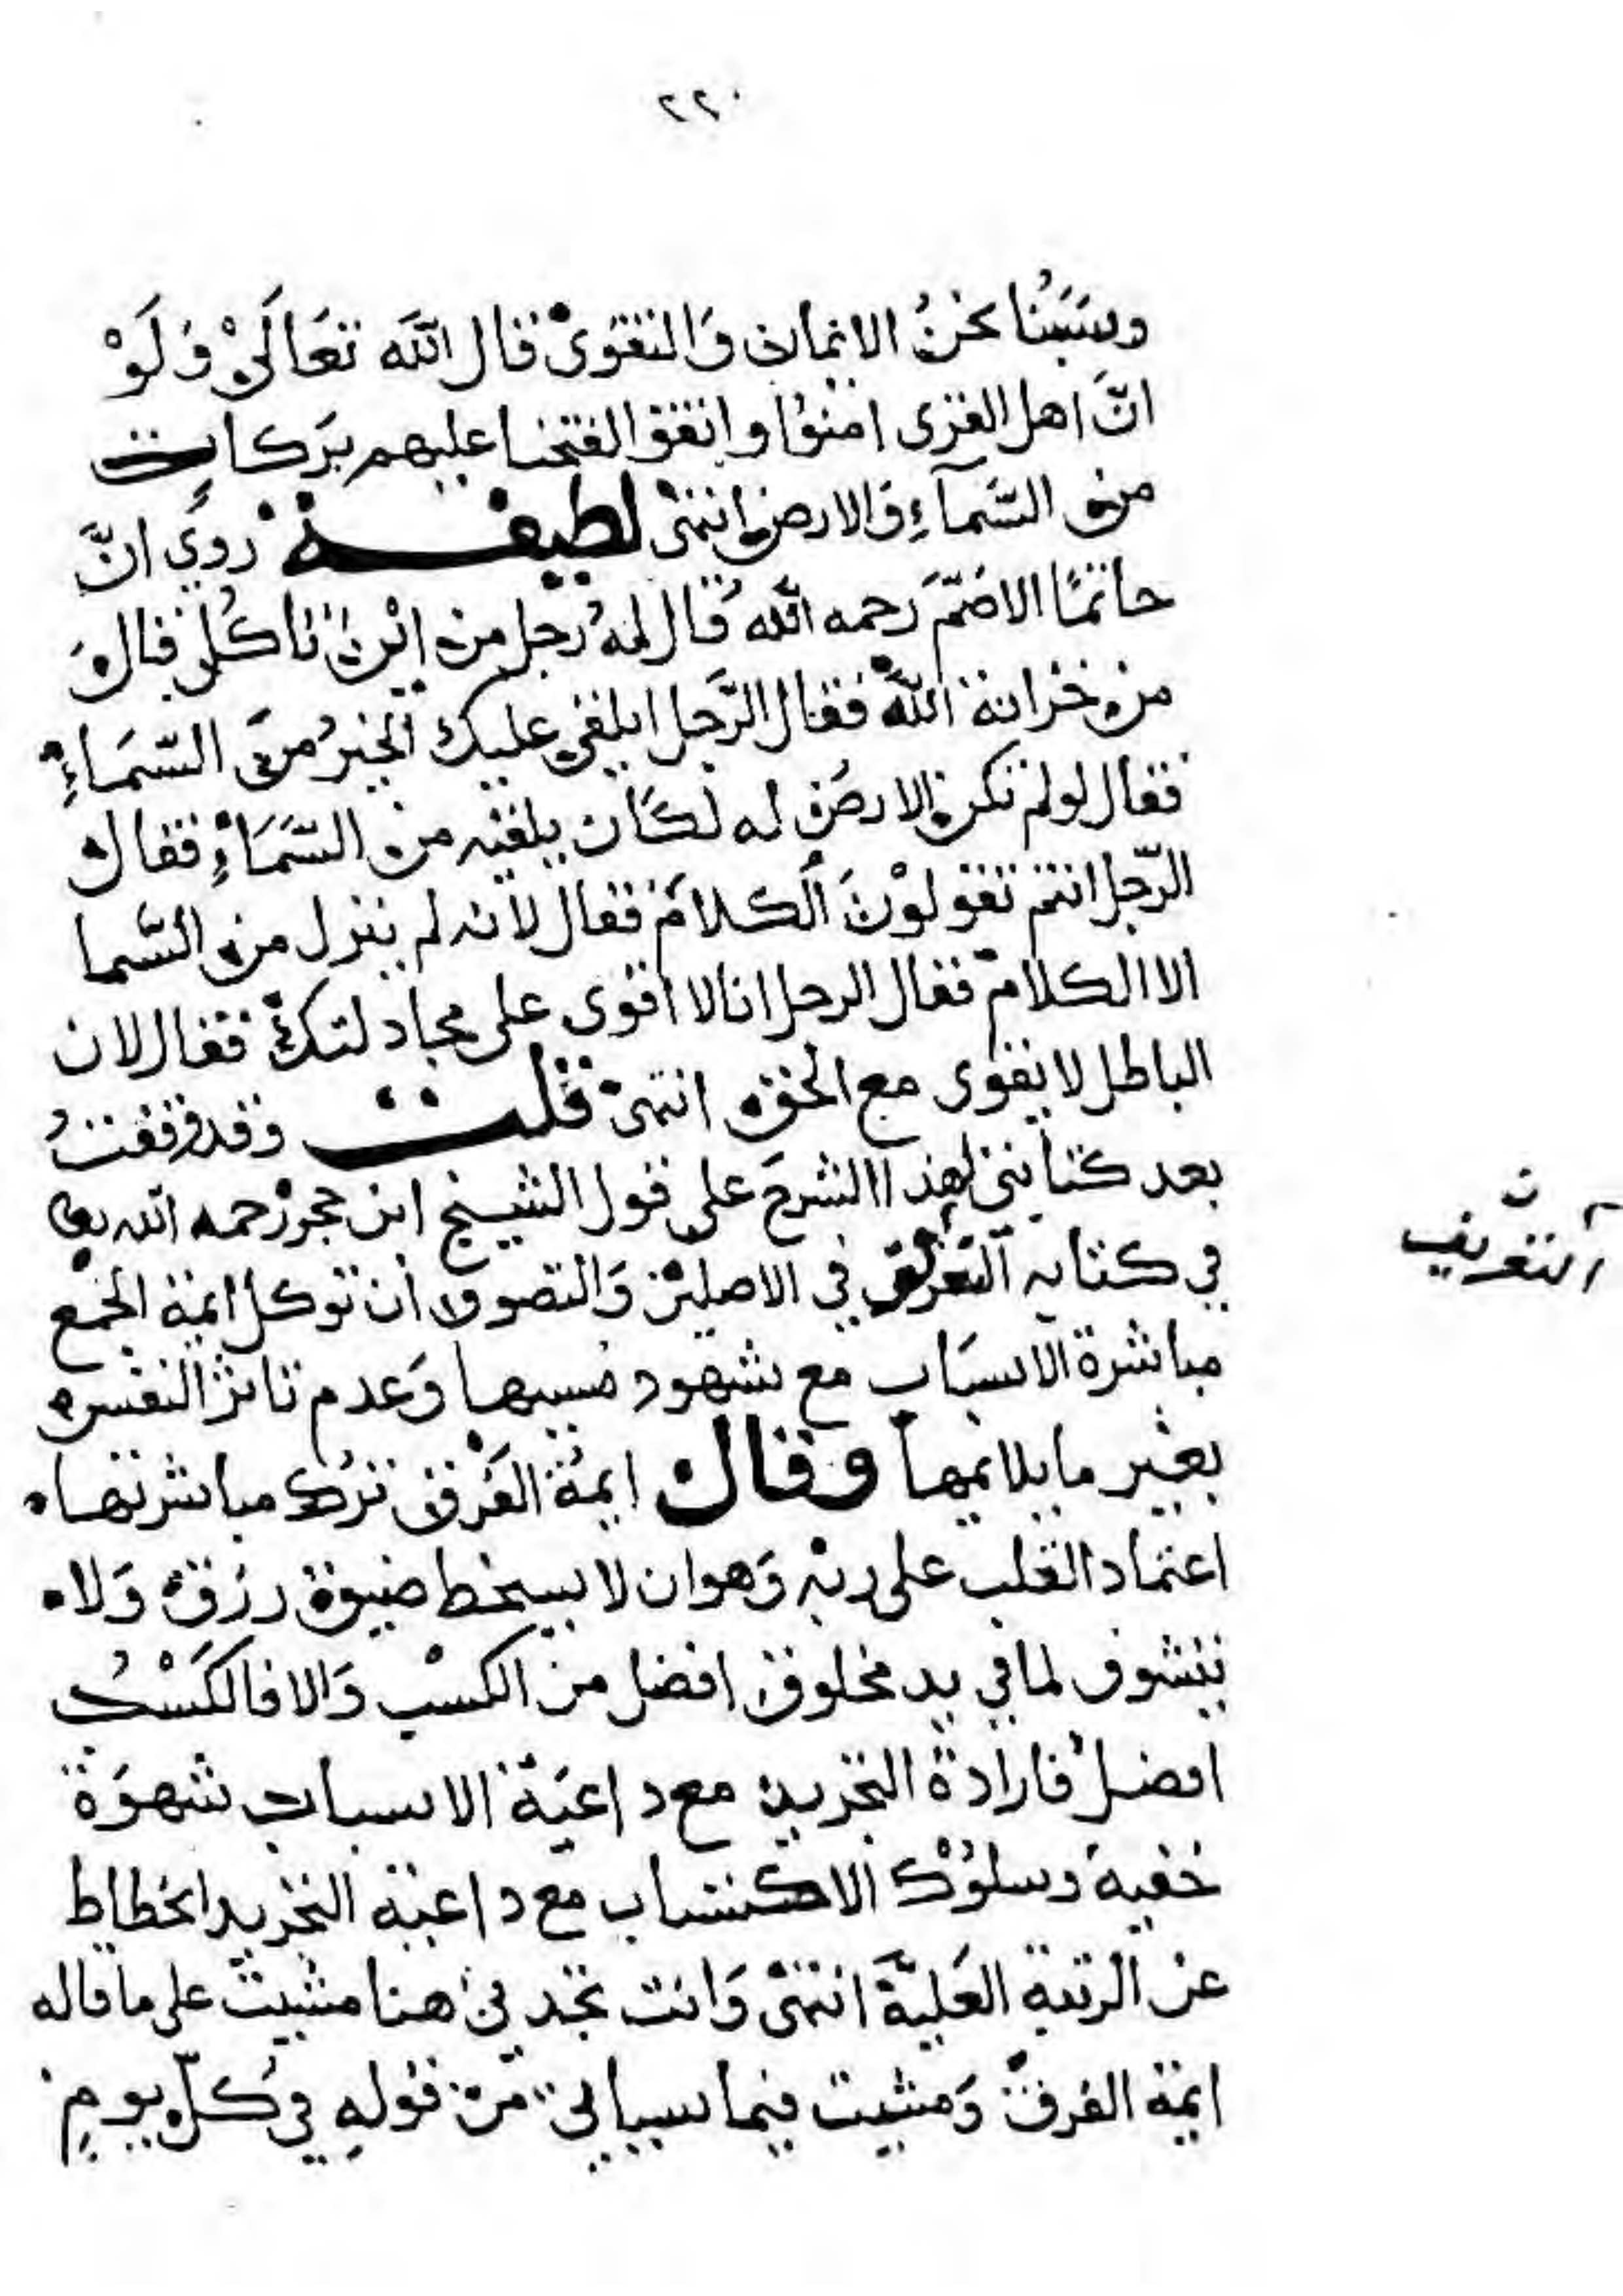 ٢٢٠
وسَبَبُنا نحنُ الايمان وَالتقوىْ قال اللّه تعَالَىْ وَلَوْ
انَّ اهل القرى امنوُا واتقوا لفتحنا عليهم برَكات
من السَّمآءِ وَالارض انتهىْ لطيفة رويَ انَّ
حاتمًا الاصَمّ رَحمه اللّه قال لهُ رَجل من ايْن تاكُل قالَ
من خزانة اللّه فقال الرَّجل ايلقي عليك الخبزُ منَ السّمَاءِ
فقال لو لم تكن الارض له لكان يلقيه من السَّمَاءِ فقال
الرّجل انتم تقولوْنَ الكلامَ فقال لانه لم ينزل من السَّما
الا الكلام فقال الرجل انا لا اقوى على مجادلتك فقال لان
الباطل لا يقوى مع الحق انتهىْ قلت وَقد وَقفتُ
بعد كتابتي لهذا الشرح على قول الشيخ ابن حجر رَحمه اللّه تعالى
في كتابه التعرف في الاصلين وَالتصوف ان توكل ايمة الجمع
مباشرة الاسبَاب مع شهود مسببها وَعدم تاثر النفس
بغير ما يلايمها وقال ايمة الفَرق ترك مباشرتها
اعتماد القلب على ربه وَهو ان لا يسخط ضيق رزق وَلا
يتشوف لما في يد مخلوق افضل من الكسْب وَالا فالكَسْبُ
افضلُ فارادة التجريد مع داعيَة الاسباب شهوَة
خفية وسلوُك الاكتساب مع داعية التجريد انحطاط
عن الرتبة العَليَّة انتهىْ وَانت تجدني هنا مشيت على ما قاله
ايمة الفرق وَمشيت فيما سياتي من قولهِ في كُلّ يومٍ
ن
التعريف